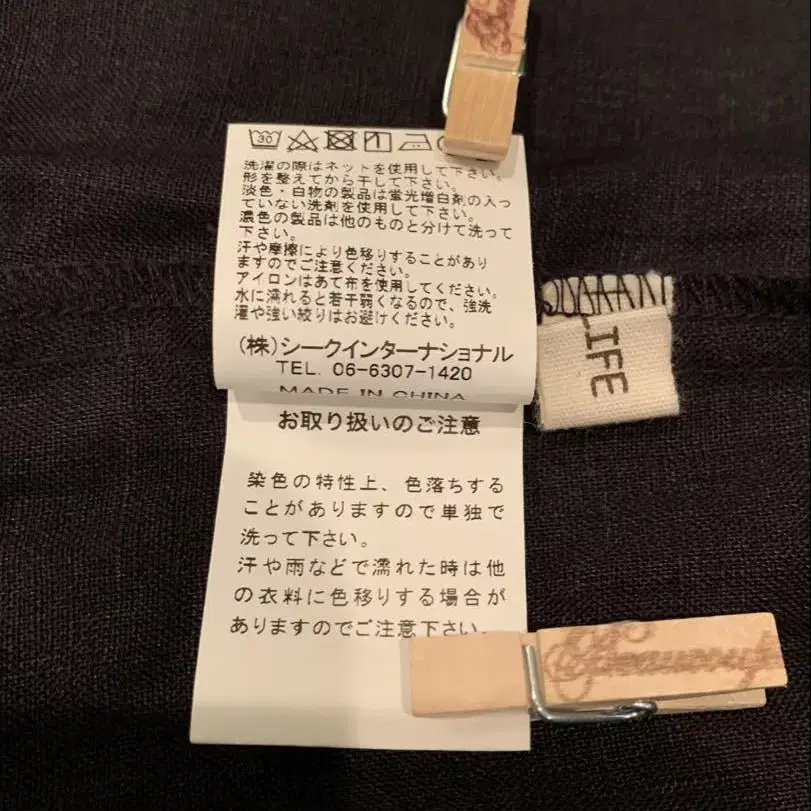 30
洗濯の際はネットを使用して下さい。
形を整えてから干して下さい。
淡色・白物の製品は蛍光増白剤の入っ
ていない洗剤を使用して下さい。
濃色の製品は他のものと分けて洗って
下さい。
汗や摩擦により色移りすることがあり
ますのでご注意ください。
アイロンはあて布を使用してください。
水に濡れると若干弱くなるので、強洗
濯や強い絞りはお避けください。
(株)シークインターナショナル
TEL. 06-6307-1420
MADE IN CHINA
LIFE
お取り扱いのご注意
染色の特性上、色落ちする
ことがありますので単独で
洗って下さい。
汗や雨などで濡れた時は他
の衣料に色移りする場合が
ありますのでご注意下さい。